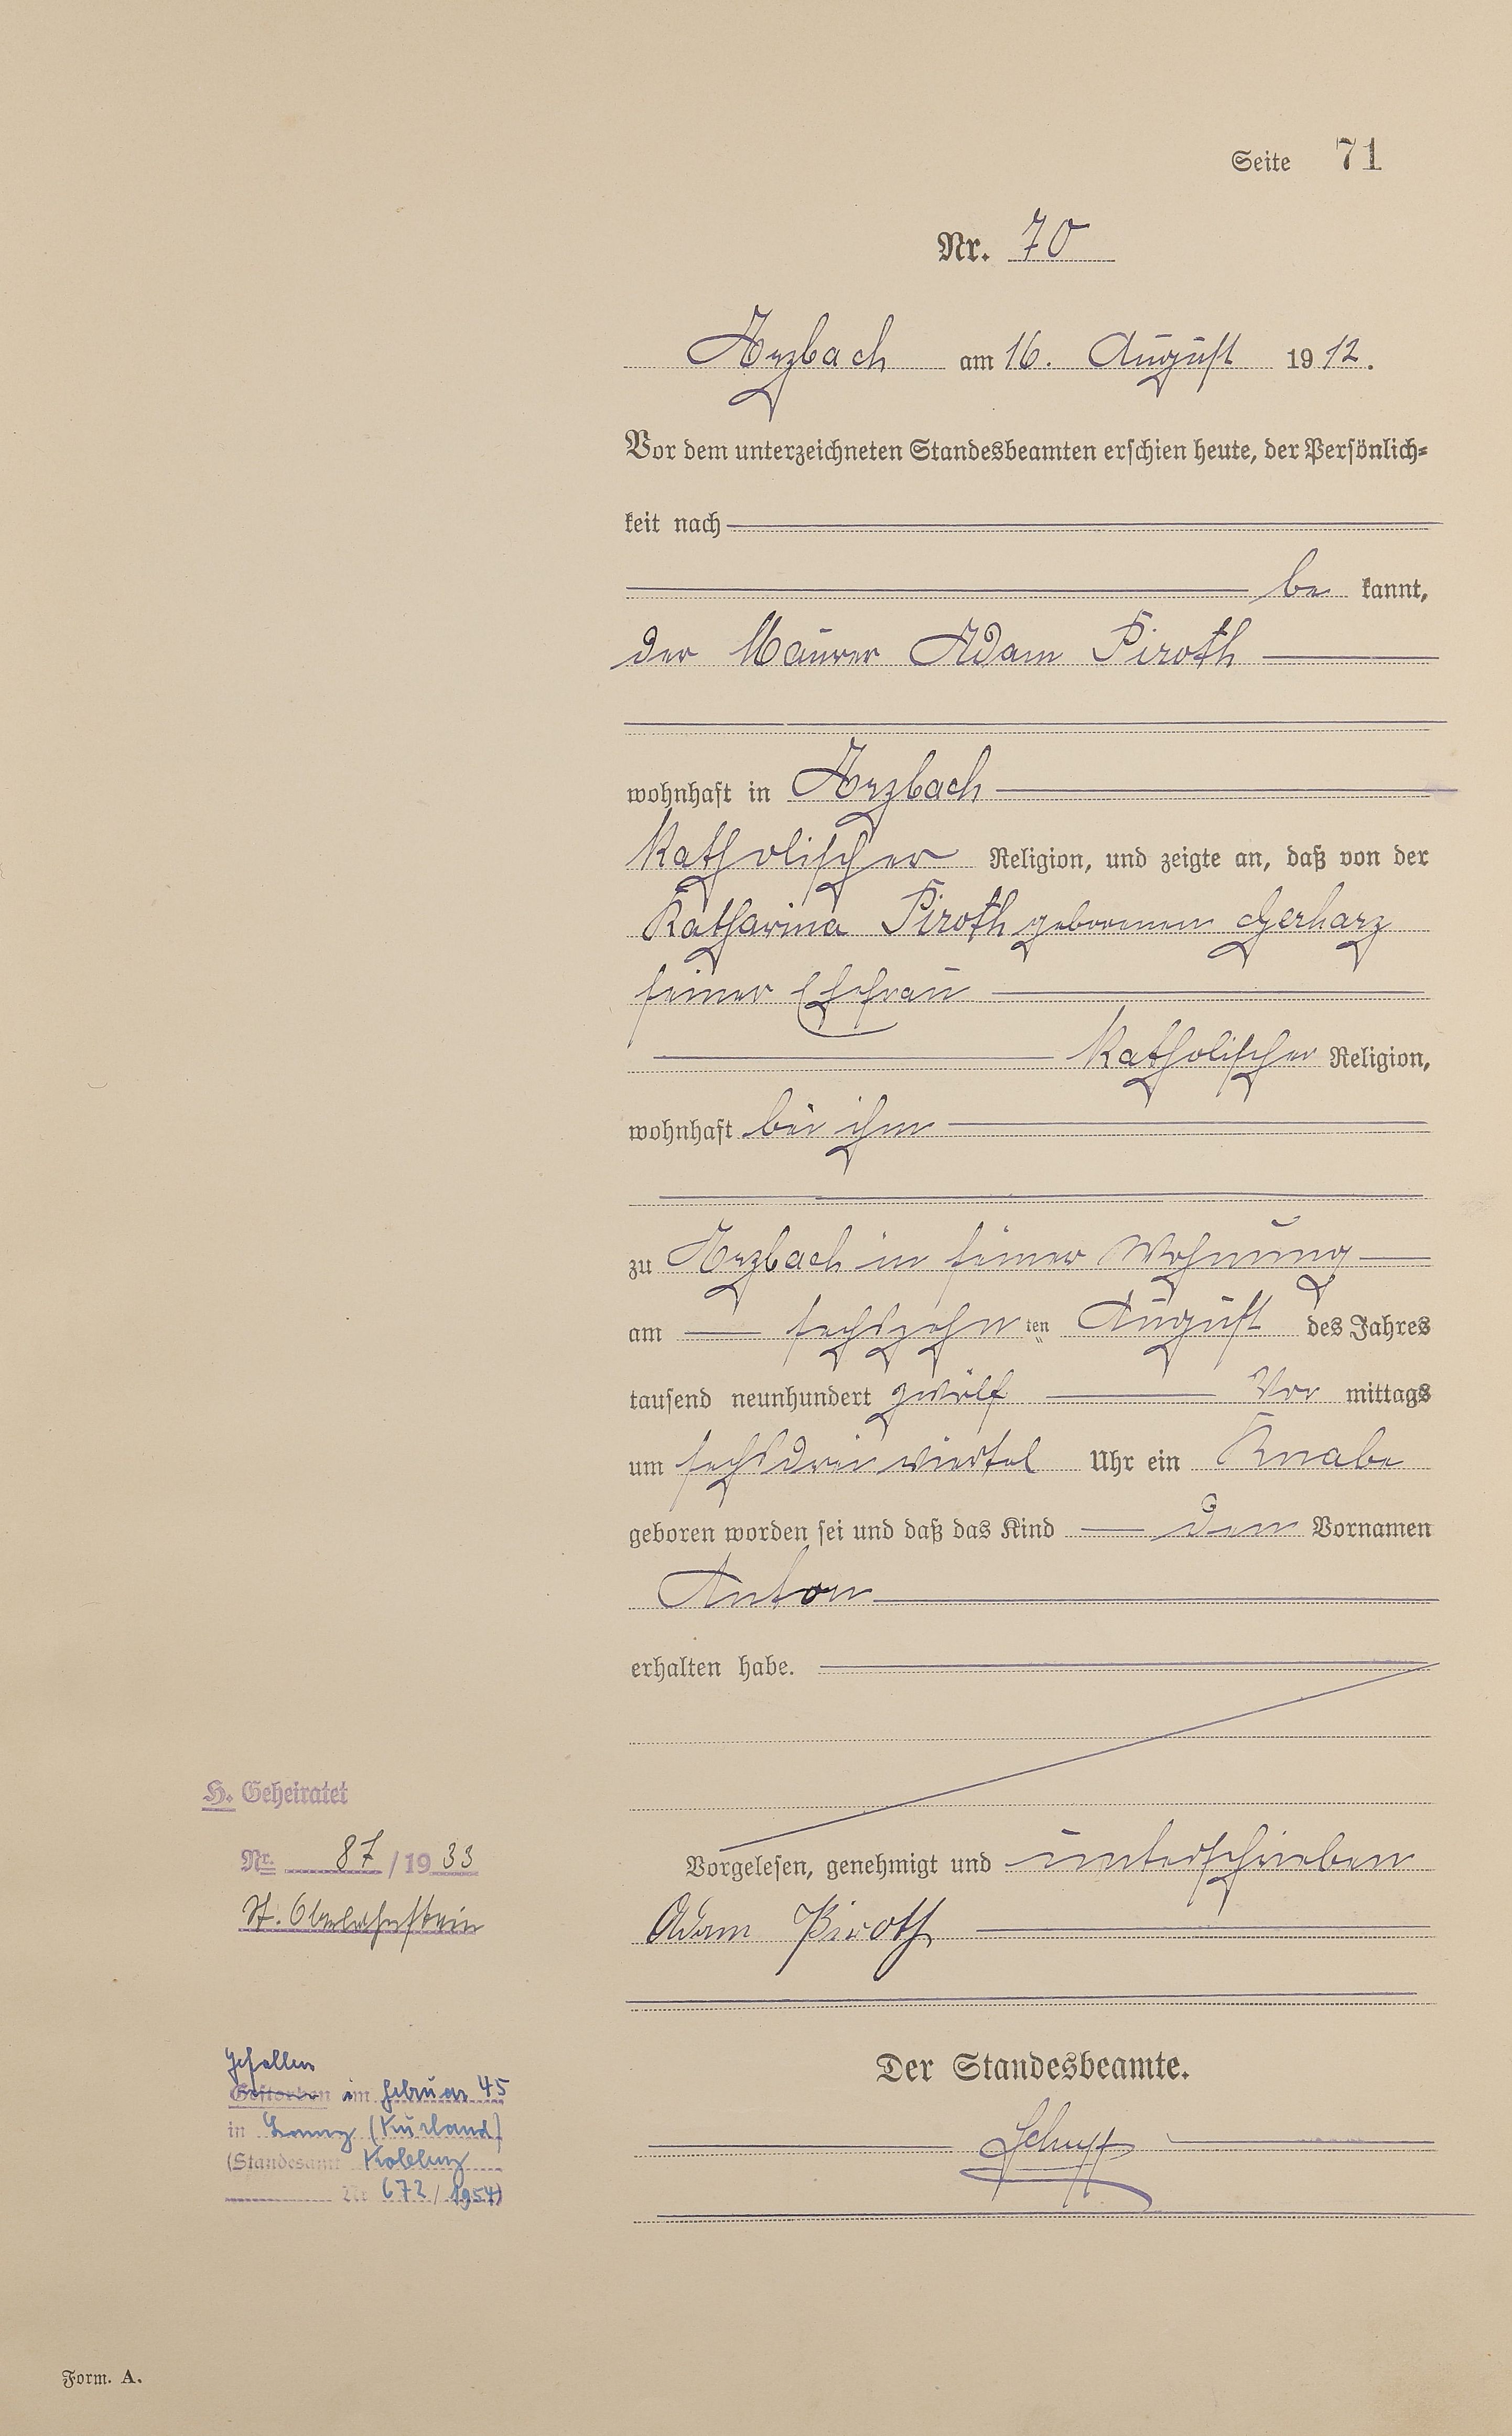 Seite 71
Nr. 70
Arzbach am 16. August 1912.
Vor dem unterzeichneten Standesbeamten erschien heute, der Persönlich-
keit nach
be kannt,
der Maurer Adam Piroth
wohnhaft in Arzbach
katholischer Religion, und zeigte an, daß von der
Katharina Piroth geborenen Gerharz
seiner Ehefrau
katholischer Religion,
wohnhaft bei ihm
zu Arzbach in seiner Wohnung
am sechszehn ten August des Jahres
tausend neunhundert zwölf Vor mittags
um sechsdreiviertel Uhr ein Knabe
geboren worden sei und daß das Kind den Vornamen
Anton
erhalten habe.
Vorgelesen, genehmigt und unterschrieben
Adam Piroth
Der Standesbeamte.
H. Geheiratet
Nr. 87/1933
St. Oberlahnstein
Gefallen
Gestorben im Februar 45
in (Kurland)
(Standesamt Koblenz
Nr 672/1954)
Form. A.